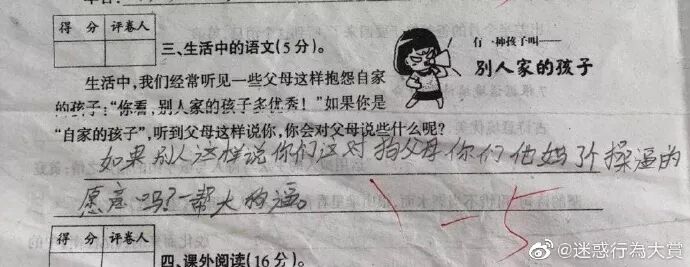 得 分 评卷人
三、生活中的语文(5分)。
有一种孩子叫——
别人家的孩子
生活中,我们经常听见一些父母这样抱怨自家
的孩子:“你看,别人家的孩子多优秀!”如果你是
“自家的孩子”,听到父母这样说你,你会对父母说些什么呢?
如果别人这样说你们这对 父母你们他妈了个操逼的
愿意吗?一帮大 逼。
-5
得 分 评卷人
四、课外阅读(16分)。
@迷惑行為大賞